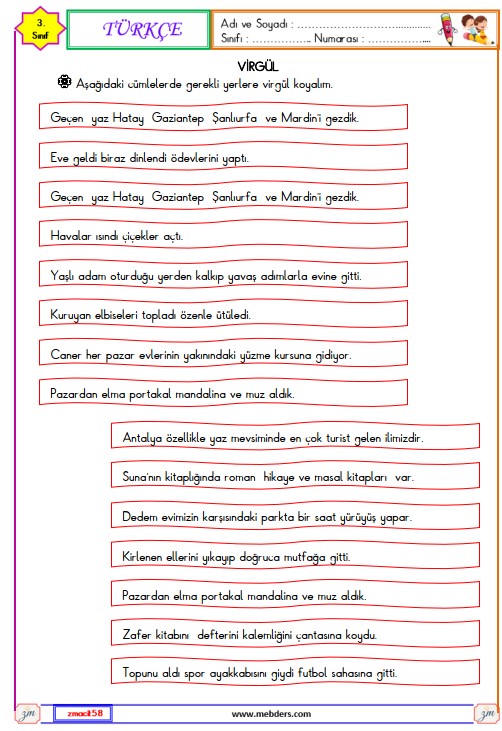 3.
Sınıf
TÜRKÇE
Adı ve Soyadı : ......................................
Sınıfı : ................. Numarası : ...................
VİRGÜL
Aşağıdaki cümlelerde gerekli yerlere virgül koyalım.
Geçen yaz Hatay Gaziantep Şanlıurfa ve Mardin'i gezdik.
Eve geldi biraz dinlendi ödevlerini yaptı.
Geçen yaz Hatay Gaziantep Şanlıurfa ve Mardin'i gezdik.
Havalar ısındı çiçekler açtı.
Yaşlı adam oturduğu yerden kalkıp yavaş adımlarla evine gitti.
Kuruyan elbiseleri topladı özenle ütüledi.
Caner her pazar evlerinin yakınındaki yüzme kursuna gidiyor.
Pazardan elma portakal mandalina ve muz aldık.
Antalya özellikle yaz mevsiminde en çok turist gelen ilimizdir.
Suna'nın kitaplığında roman hikaye ve masal kitapları var.
Dedem evimizin karşısındaki parkta bir saat yürüyüş yapar.
Kirlenen ellerini yıkayıp doğruca mutfağa gitti.
Pazardan elma portakal mandalina ve muz aldık.
Zafer kitabını defterini kalemliğini çantasına koydu.
Topunu aldı spor ayakkabısını giydi futbol sahasına gitti.
zm zmacit58 www.mebders.com zm